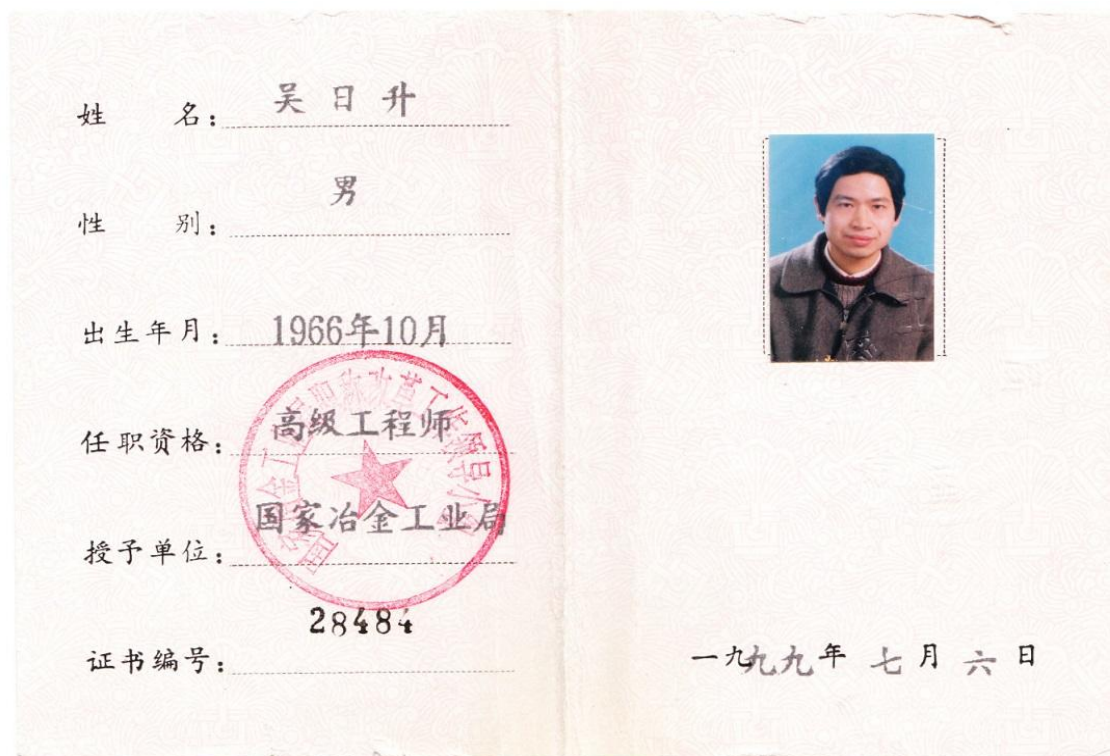 姓 名：吴日升
性 别：男
出生年月：1966年10月
任职资格：高级工程师
授予单位：国家冶金工业局
证书编号：28484
一九九九年 七 月 六 日